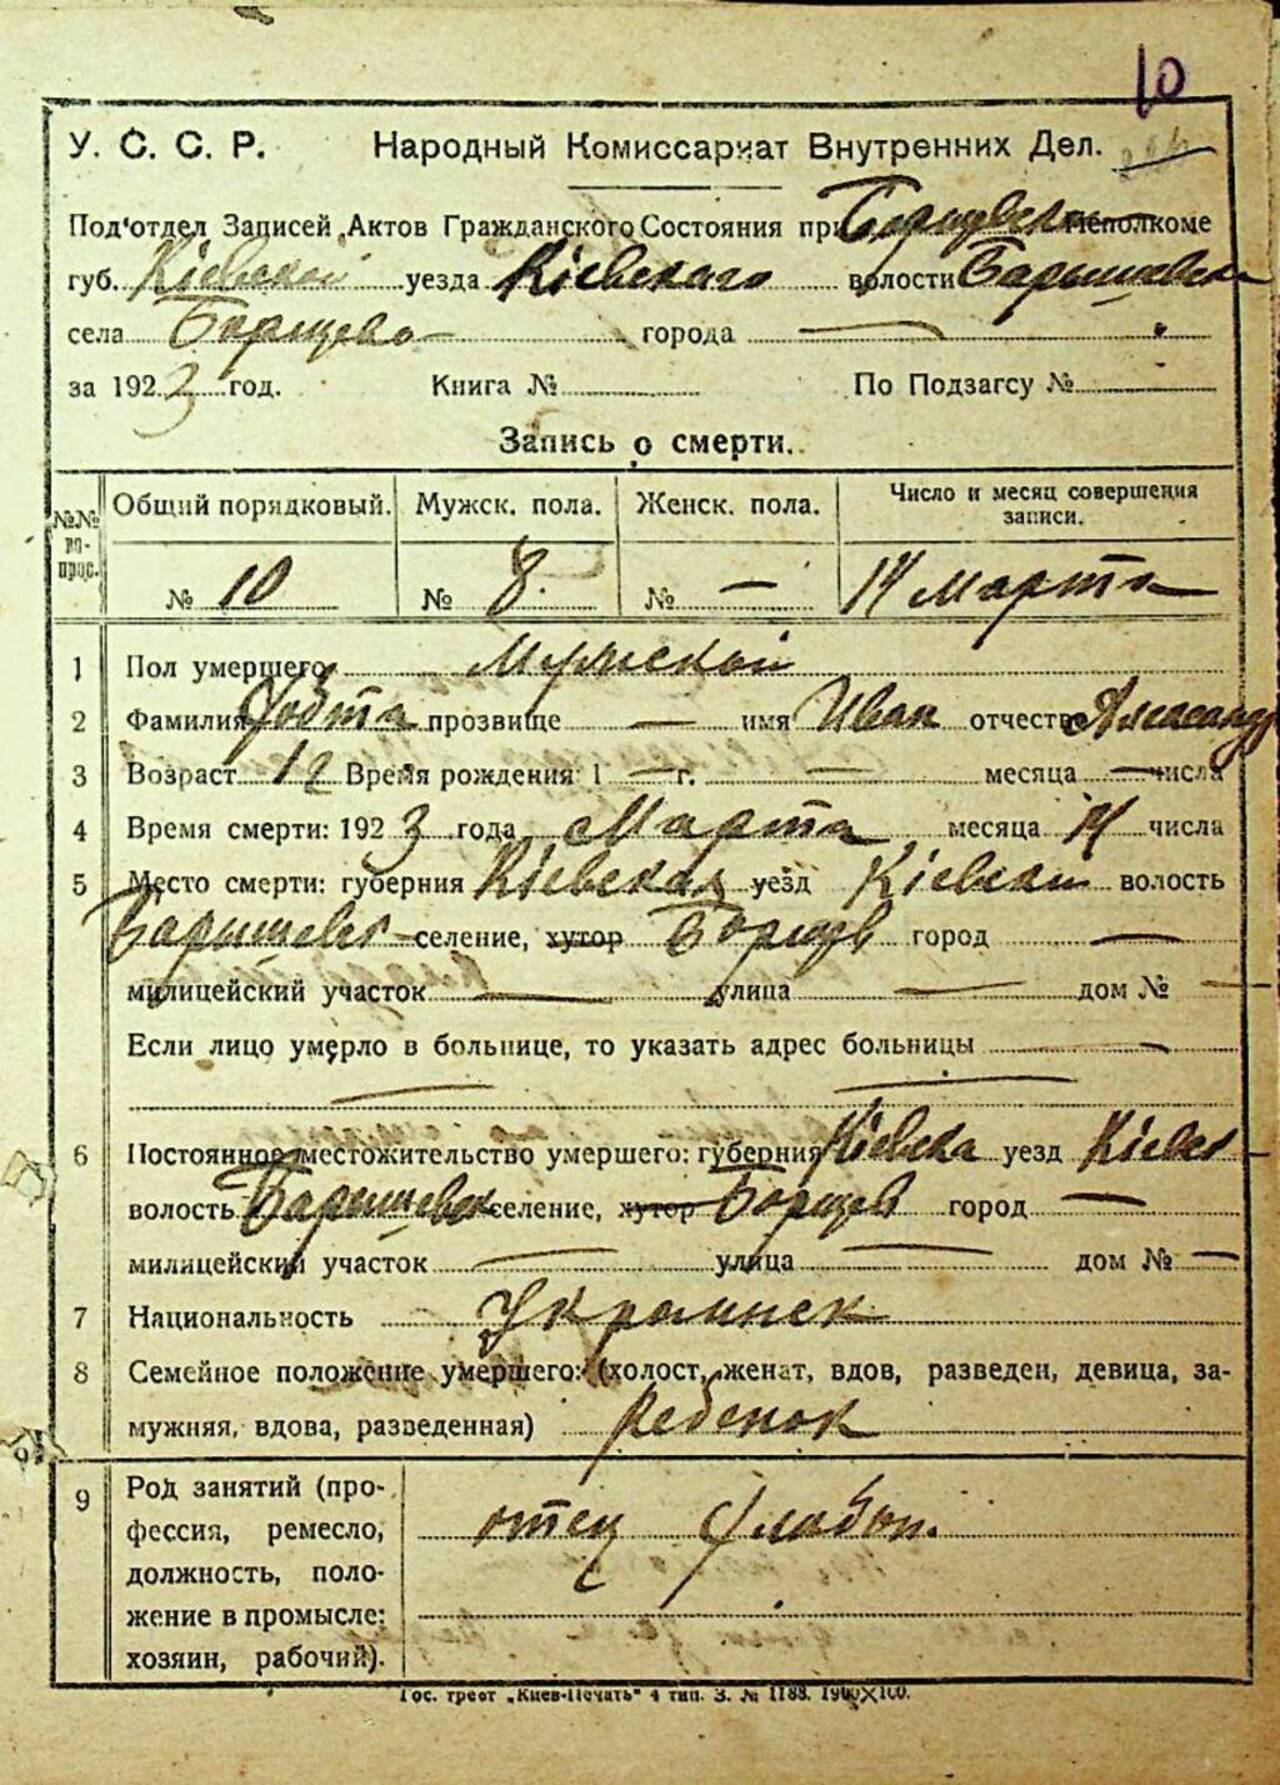 10
У. С. С. Р. Народный Комиссариат Внутренних Дел.
Под'отдел Записей Актов Гражданского Состояния при Исполкоме
губ. Кіевской уезда Кіевскаго волости Барышевск
села Борщево города —
за 1923 год. Книга № По Подзагсу №
Запись о смерти.
№№ вопрос. Общий порядковый. Мужск. пола. Женск. пола. Число и месяц совершения записи.
№ 10 № 8. № — 14 Марта
1 Пол умершего Мужской
2 Фамилия прозвище — имя Иван отчество
3 Возраст 12 Время рождения: 1 — г. — месяца — числа
4 Время смерти: 1923 года Марта месяца 14 числа
5 Место смерти: губерния Кіевская уезд Кіевский волость
Барышевск селение, хутор Борщев город —
милицейский участок — улица — дом № —
Если лицо умерло в больнице, то указать адрес больницы —
6 Постоянное местожительство умершего: губерния Кіевска уезд Кіевск
волость Барышевск селение, хутор Борщев город —
милицейский участок — улица — дом № —
7 Национальность Украинек
8 Семейное положение умершего: (холост, женат, вдов, разведен, девица, за-
мужняя, вдова, разведенная) Ребенок
9 Род занятий (про-
фессия, ремесло, отец
должность, поло-
жение в промысле:
хозяин, рабочий).
Гос. трест „Киев-Печать" 4 тип. З. № 1188. 1900×100.